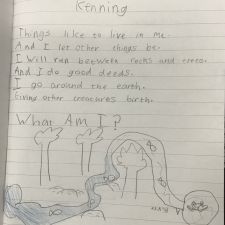 Kenning
Things like to live in me.
And I let other things be.
I Will run between rocks and trees.
And I do good deeds.
I go around the earth.
Giving other creatures birth.
What Am I?